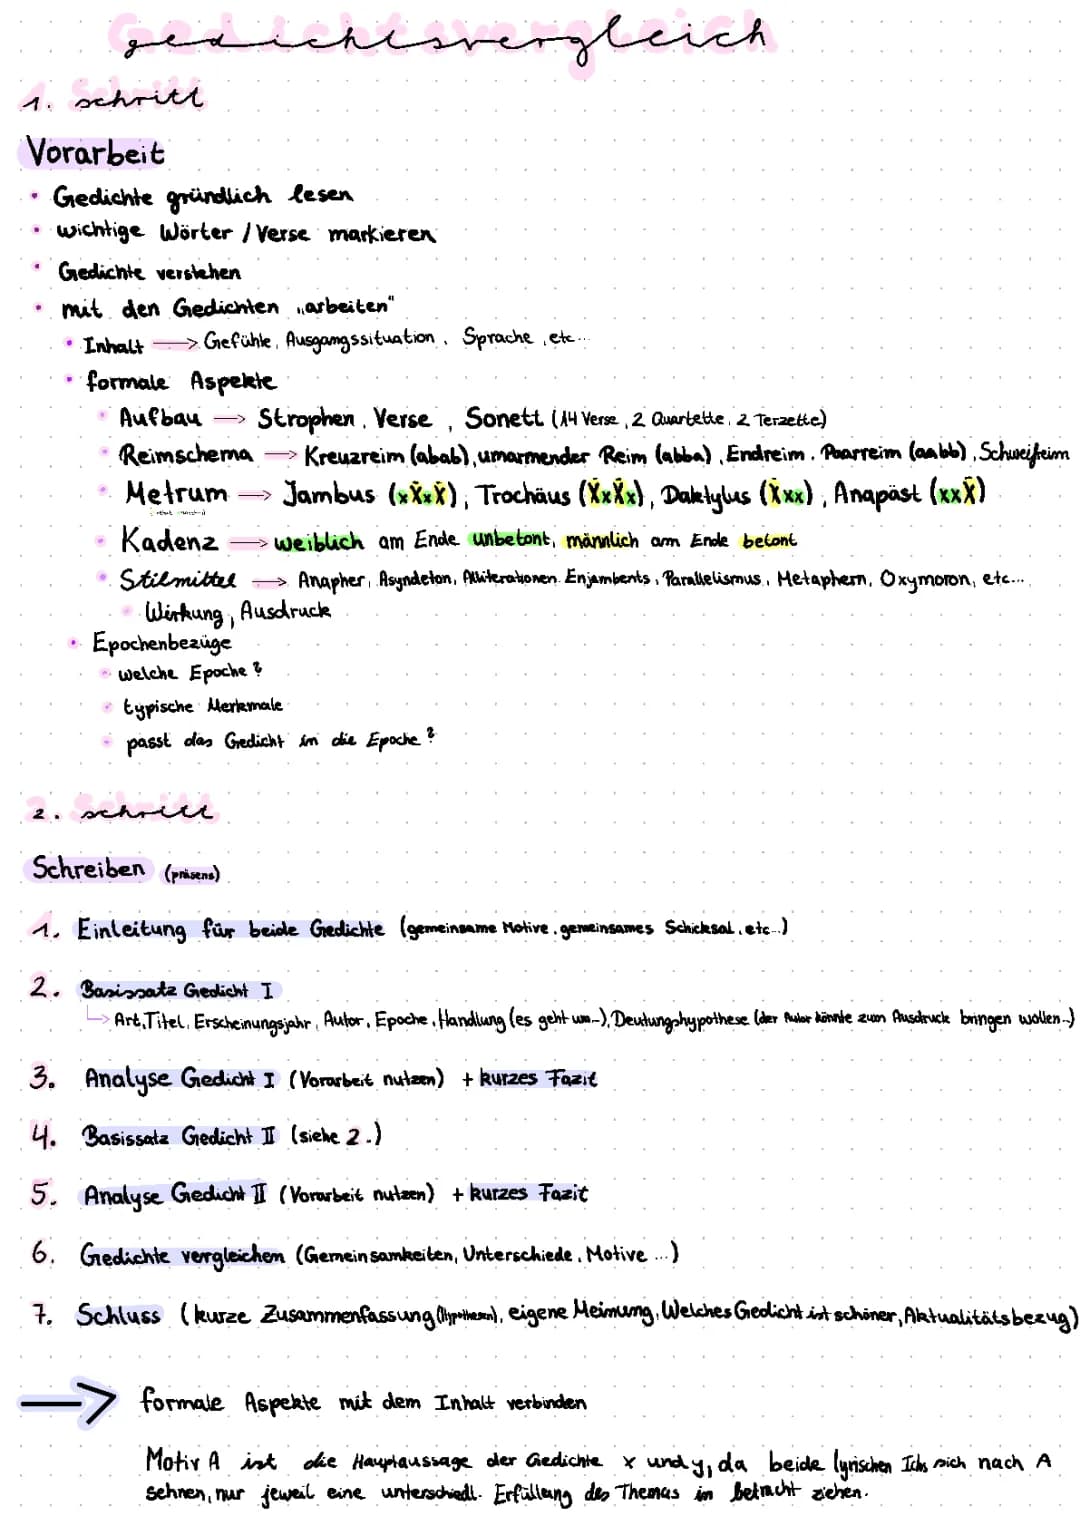 gedichtsvergleich
1. schritt
Vorarbeit
• Gedichte gründlich lesen
• wichtige Wörter / Verse markieren
• Gedichte verstehen
• mit den Gedichten „arbeiten"
• Inhalt → Gefühle, Ausgangssituation, Sprache, etc...
• formale Aspekte
• Aufbau → Strophen, Verse, Sonett (14 Verse, 2 Quartette, 2 Terzette)
• Reimschema → Kreuzreim (abab), umarmender Reim (abba), Endreim, Paarreim (aabb), Schweifreim
• Metrum → Jambus (xX́xX́), Trochäus (X́xX́x), Daktylus (X́xx), Anapäst (xxX́)
• Kadenz → weiblich am Ende unbetont, männlich am Ende betont
• Stilmittel → Anapher, Asyndeton, Alliterationen, Enjambents, Parallelismus, Metaphern, Oxymoron, etc...
• Wirkung, Ausdruck
• Epochenbezüge
• welche Epoche?
• typische Merkmale
• passt das Gedicht in die Epoche?
2. schritt
Schreiben (präsens)
1. Einleitung für beide Gedichte (gemeinsame Motive, gemeinsames Schicksal, etc...)
2. Basissatz Gedicht I
↳ Art, Titel, Erscheinungsjahr, Autor, Epoche, Handlung (es geht um...), Deutungshypothese (der Autor könnte zum Ausdruck bringen wollen...)
3. Analyse Gedicht I (Vorarbeit nutzen) + kurzes Fazit
4. Basissatz Gedicht II (siehe 2.)
5. Analyse Gedicht II (Vorarbeit nutzen) + kurzes Fazit
6. Gedichte vergleichen (Gemeinsamkeiten, Unterschiede, Motive ...)
7. Schluss (kurze Zusammenfassung (Hypothesen), eigene Meinung, Welches Gedicht ist schöner, Aktualitätsbezug)
→ formale Aspekte mit dem Inhalt verbinden
Motiv A ist die Hauptaussage der Gedichte x und y, da beide lyrischen Ichs sich nach A
sehnen, nur jeweil eine unterschiedl. Erfüllung des Themas in betracht ziehen.